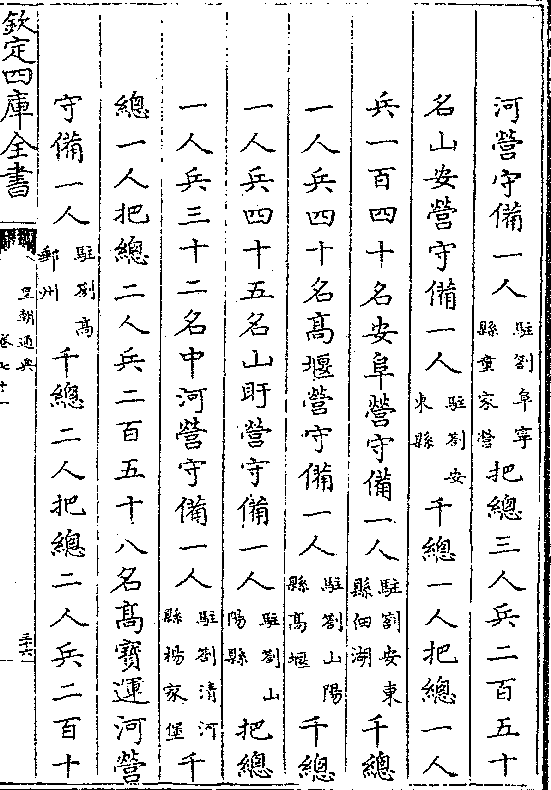 河營守備一人駐劄阜寧縣童家營把總三人兵二百五十
名山安營守備一人駐劄安東縣千總一人把總一人
兵一百四十名安阜營守備一人駐劄安東縣佃湖千總
一人兵四十名高堰營守備一人駐劄山陽縣高堰千總
一人兵四十五名山盱營守備一人駐劄山陽縣把總
一人兵三十二名中河營守備一人駐劄清河縣楊家堡千
總一人把總二人兵二百五十八名高寶運河營
守備一人駐劄高郵州千總二人把總二人兵二百十
欽定四庫全書
皇朝通典
卷七十一
三十六